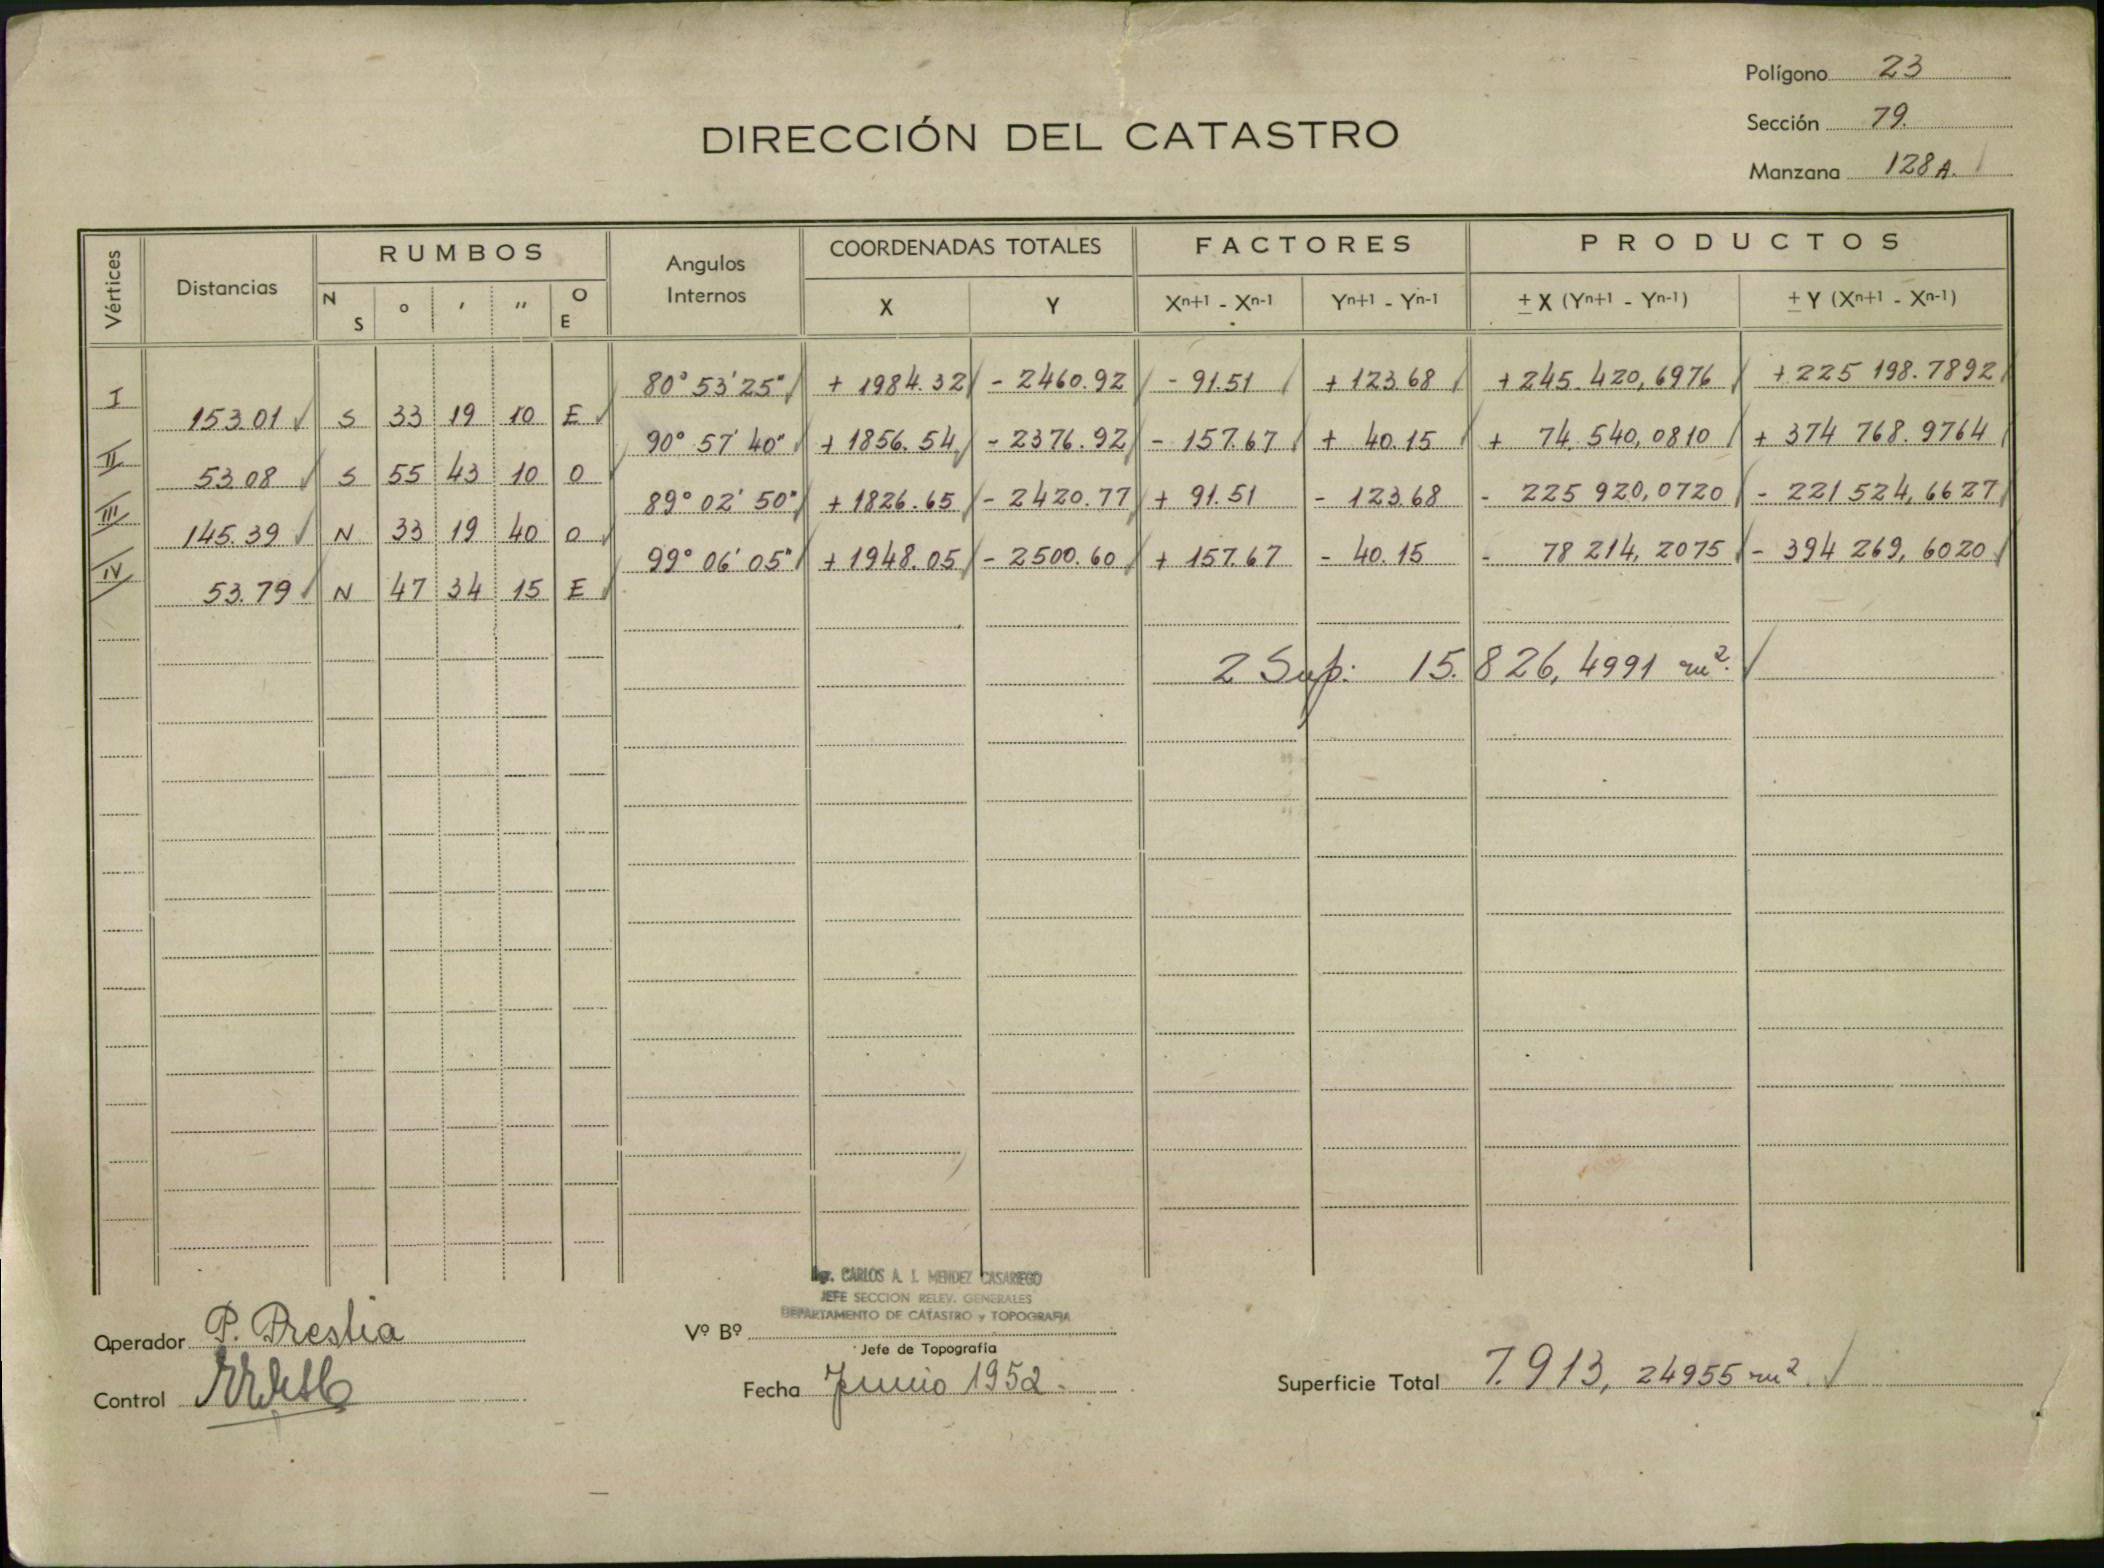 Polígono 23
Sección 79.
Manzana 128 A.
DIRECCIÓN DEL CATASTRO
Vértices Distancias RUMBOS Angulos Internos COORDENADAS TOTALES FACTORES PRODUCTOS
N S ° ' " O E X Y Xn+1 - Xn-1 Yn+1 - Yn-1 ± X (Yn+1 - Yn-1) ± Y (Xn+1 - Xn-1)
I 80° 53' 25" + 1984.32 - 2460.92 - 91.51 + 123.68 + 245.420,6976 + 225 198.7892
153.01 S 33 19 10 E
II 90° 57' 40" + 1856.54 - 2376.92 - 157.67 + 40.15 + 74.540,0810 + 374 768.9764
53.08 S 55 43 10 O
III 89° 02' 50" + 1826.65 - 2420.77 + 91.51 - 123.68 - 225 920,0720 - 221 524,6627
145.39 N 33 19 40 O
IV 99° 06' 05" + 1948.05 - 2500.60 + 157.67 - 40.15 - 78 214,2075 - 394 269,6020
53.79 N 47 34 15 E
2 Sup: 15.826,4991 m².
CARLOS A. I. MENDEZ CASARIEGO
JEFE SECCION RELEV. GENERALES
DEPARTAMENTO DE CATASTRO y TOPOGRAFIA
Operador P. Prestia
Vº Bº
Jefe de Topografía
Control
Fecha Junio 1952.
Superficie Total 7.913, 24955 m².